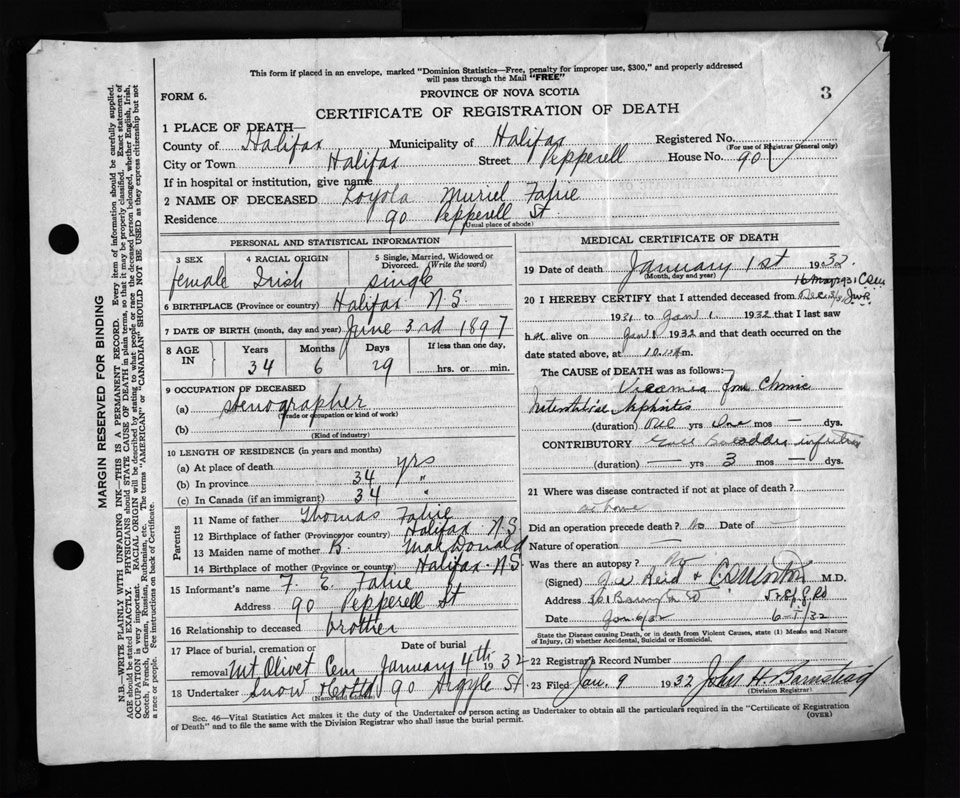 This form if placed in an envelope, marked "Dominion Statistics—Free, penalty for improper use, $300," and properly addressed
will pass through the Mail "FREE"
FORM 6.
PROVINCE OF NOVA SCOTIA
3
CERTIFICATE OF REGISTRATION OF DEATH
1 PLACE OF DEATH—
County of Halifax Municipality of Halifax Registered No.
(For use of Registrar General only)
City or Town Halifax Street Pepperell House No. 90
If in hospital or institution, give name
2 NAME OF DECEASED Loyola Muriel Fahie
Residence 90 Pepperell St
(Usual place of abode)
PERSONAL AND STATISTICAL INFORMATION
3 SEX 4 RACIAL ORIGIN 5 Single, Married, Widowed or
Divorced. (Write the word)
female Irish single
6 BIRTHPLACE (Province or country) Halifax N.S.
7 DATE OF BIRTH (month, day and year) June 3rd 1897
8 AGE IN Years Months Days If less than one day,
34 6 29 hrs. or min.
9 OCCUPATION OF DECEASED
(a) stenographer
(Trade or occupation or kind of work)
(b)
(Kind of industry)
10 LENGTH OF RESIDENCE (in years and months)
(a) At place of death yrs
(b) In province 34 "
(c) In Canada (if an immigrant) 34 "
Parents
11 Name of father Thomas Fahie
12 Birthplace of father (Province or country) Halifax N.S
13 Maiden name of mother B. MacDonald
14 Birthplace of mother (Province or country) Halifax N.S.
15 Informant's name F. E. Fahie
Address 90 Pepperell St
16 Relationship to deceased brother
17 Place of burial, cremation or Date of burial
removal Mt Olivet Cem January 4th 1932
18 Undertaker Snow & Co Ltd 90 Argyle St.
(Name and address)
MEDICAL CERTIFICATE OF DEATH
19 Date of death January 1st 1932.
(Month, day and year)
20 I HEREBY CERTIFY that I attended deceased from
1931 to Jan 1. 1932 that I last saw
her alive on Jan 1 1932 and that death occurred on the
date stated above, at 10 m.
The CAUSE of DEATH was as follows:
Uraemia from Chronic
Interstitial Nephritis
(duration) One yrs One mos — dys.
CONTRIBUTORY Gall bladder infection
(duration) — yrs 3 mos — dys.
21 Where was disease contracted if not at place of death?
at home
Did an operation precede death? No Date of —
Nature of operation —
Was there an autopsy? No
(Signed) M.D.
Address
Date 6-1/32
State the Disease causing Death, or in death from Violent Causes, state (1) Means and Nature
of Injury, (2) whether Accidental, Suicidal or Homicidal.
22 Registrar's Record Number
23 Filed Jan. 9 1932 John H. Barnstead
(Division Registrar)
Sec. 46—Vital Statistics Act makes it the duty of the Undertaker or person acting as Undertaker to obtain all the particulars required in the "Certificate of Registration
of Death" and to file the same with the Division Registrar who shall issue the burial permit.
(OVER)
MARGIN RESERVED FOR BINDING
N.B.—WRITE PLAINLY WITH UNFADING INK—THIS IS A PERMANENT RECORD. Every item of information should be carefully supplied.
AGE should be stated EXACTLY. PHYSICIANS should STATE CAUSE OF DEATH in plain terms, so that it may be properly classified. Exact statement of
OCCUPATION is very important. RACIAL ORIGIN will be described by stating to what people or race the deceased person belonged, whether English, Irish,
Scotch, French, German, Russian, Ruthenian, etc. The terms "AMERICAN" or "CANADIAN" SHOULD NOT BE USED as they express citizenship but not
a race or people. See instructions on back of Certificate.